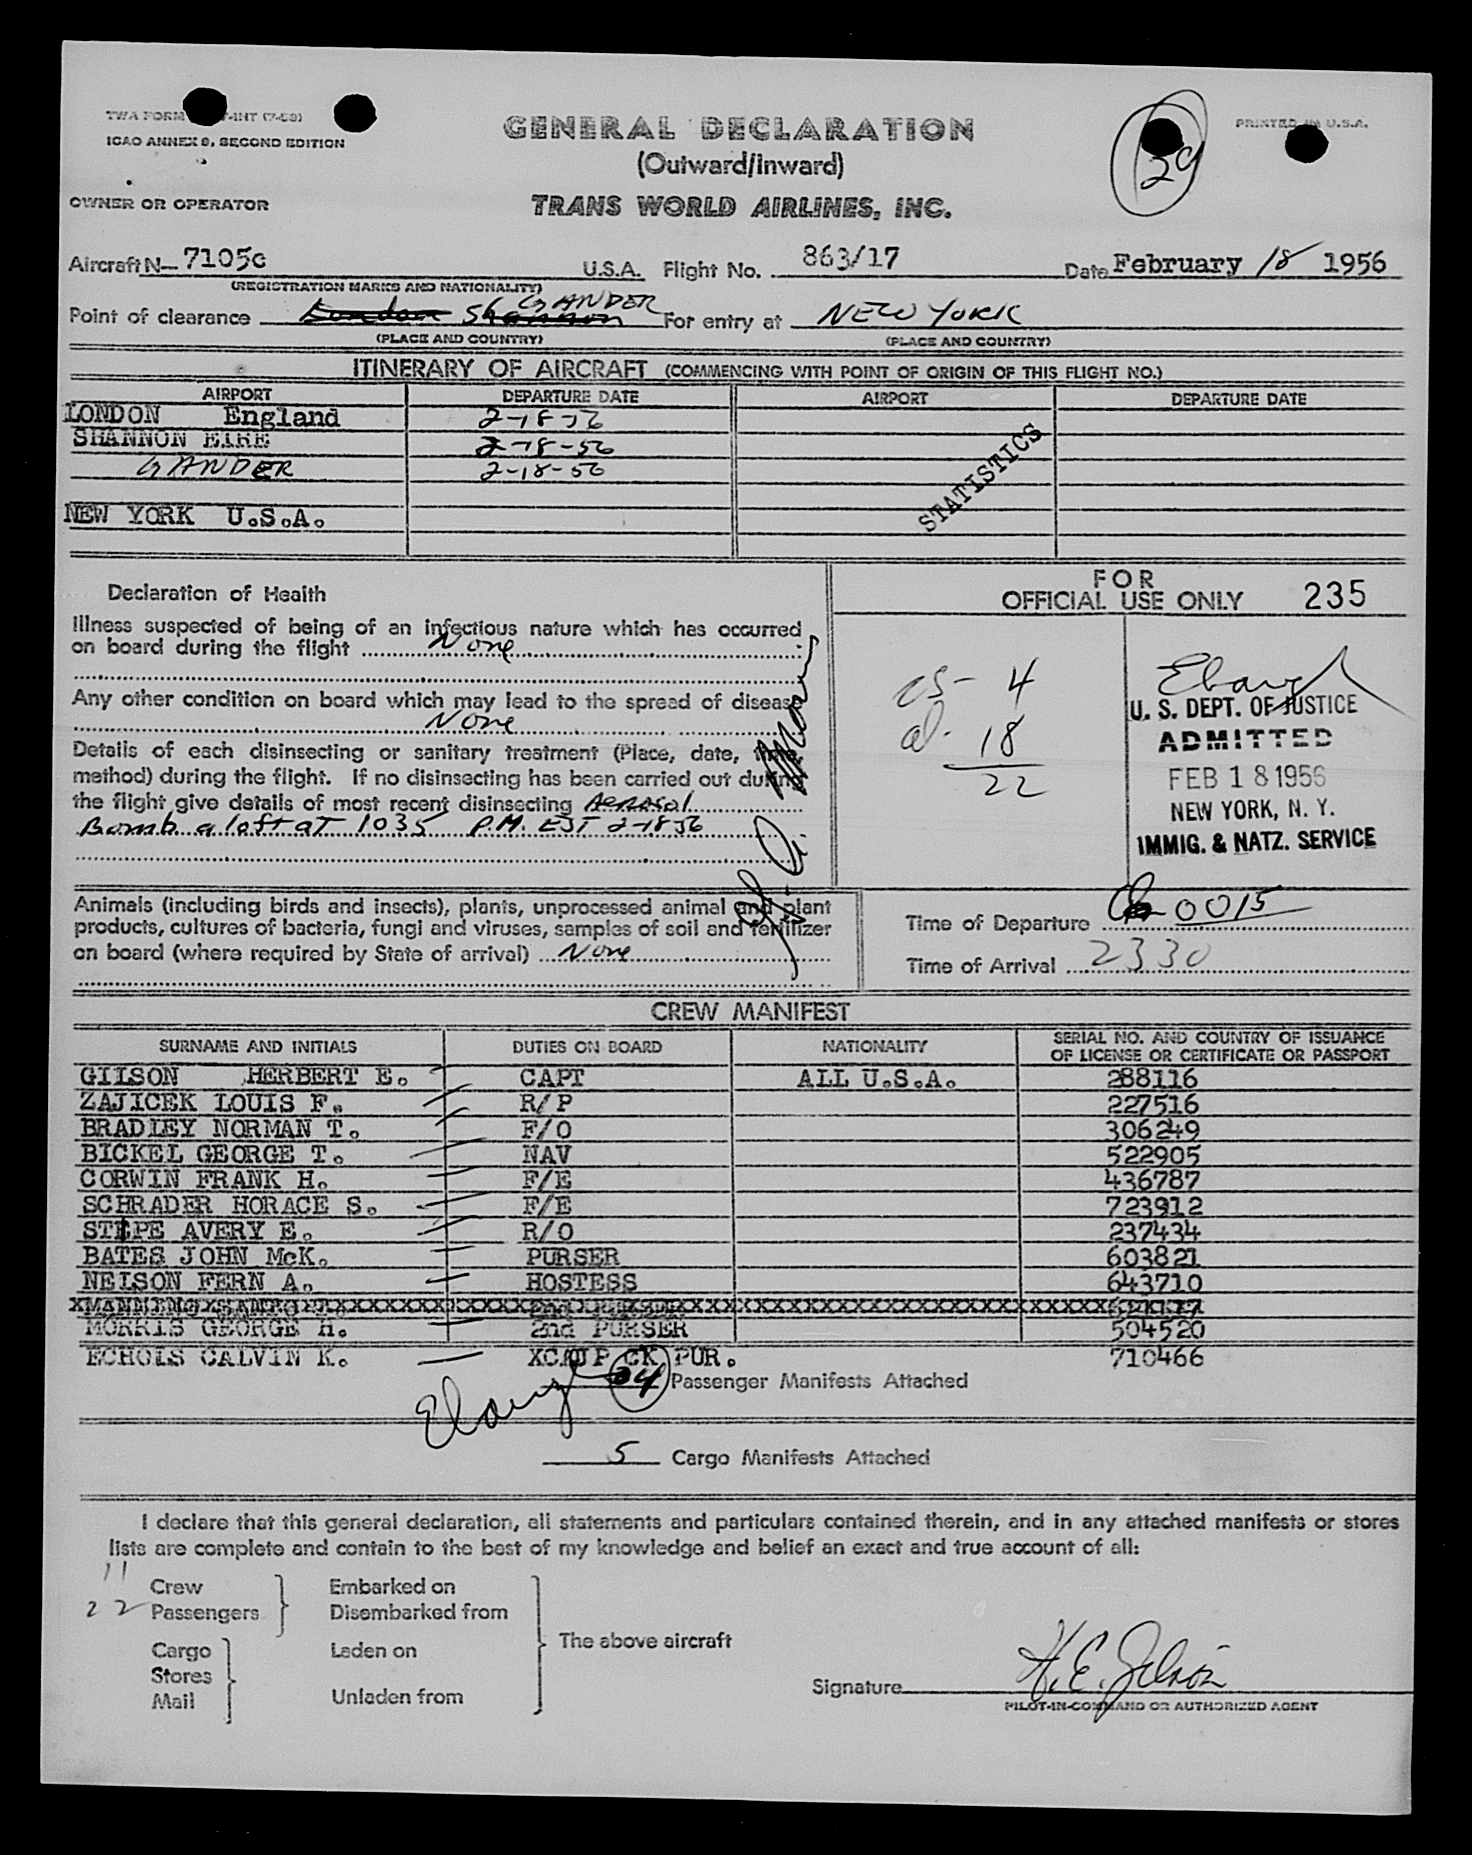 TWA FORM -INT (7-53)
ICAO ANNEX 9, SECOND EDITION
GENERAL DECLARATION
(Outward/Inward)
TRANS WORLD AIRLINES, INC.
29
PRINTED IN U.S.A.
OWNER OR OPERATOR
Aircraft N- 7105C U.S.A. Flight No. 863/17 Date February 18 1956
(REGISTRATION MARKS AND NATIONALITY)
Point of clearance London Shannon GANDER For entry at NEW YORK
(PLACE AND COUNTRY) (PLACE AND COUNTRY)
ITINERARY OF AIRCRAFT (COMMENCING WITH POINT OF ORIGIN OF THIS FLIGHT NO.)
AIRPORT DEPARTURE DATE AIRPORT DEPARTURE DATE
LONDON England 2-18-56
SHANNON EIRE 2-18-56
GANDER 2-18-56
NEW YORK U.S.A.
STATISTICS
Declaration of Health
Illness suspected of being of an infectious nature which has occurred
on board during the flight None
Any other condition on board which may lead to the spread of disease
None
Details of each disinsecting or sanitary treatment (Place, date, time,
method) during the flight. If no disinsecting has been carried out during
the flight give details of most recent disinsecting Aerosol
Bomb aloft at 1035 P.M. EST 2-18-56
FOR
OFFICIAL USE ONLY 235
cs- 4
al- 18
22
Ebaugh
U. S. DEPT. OF JUSTICE
ADMITTED
FEB 18 1956
NEW YORK, N. Y.
IMMIG. & NATZ. SERVICE
Animals (including birds and insects), plants, unprocessed animal and plant
products, cultures of bacteria, fungi and viruses, samples of soil and fertilizer
on board (where required by State of arrival) None
Time of Departure 0015
Time of Arrival 2330
CREW MANIFEST
SURNAME AND INITIALS DUTIES ON BOARD NATIONALITY SERIAL NO. AND COUNTRY OF ISSUANCE
OF LICENSE OR CERTIFICATE OR PASSPORT
GILSON HERBERT E. CAPT ALL U.S.A. 288116
ZAJICEK LOUIS F. R/P 227516
BRADLEY NORMAN T. F/O 306249
BICKEL GEORGE T. NAV 522905
CORWIN FRANK H. F/E 436787
SCHRADER HORACE S. F/E 723912
STIPE AVERY E. R/O 237434
BATES JOHN McK. PURSER 603821
NELSON FERN A. HOSTESS 643710
MORRIS GEORGE H. 2nd PURSER 504520
ECHOLS CALVIN K. CK PUR. 710466
04 Passenger Manifests Attached
5 Cargo Manifests Attached
I declare that this general declaration, all statements and particulars contained therein, and in any attached manifests or stores
lists are complete and contain to the best of my knowledge and belief an exact and true account of all:
11 Crew Embarked on
22 Passengers Disembarked from
Cargo Laden on The above aircraft
Stores
Mail Unladen from
Signature H. E. Gilson
PILOT-IN-COMMAND OR AUTHORIZED AGENT